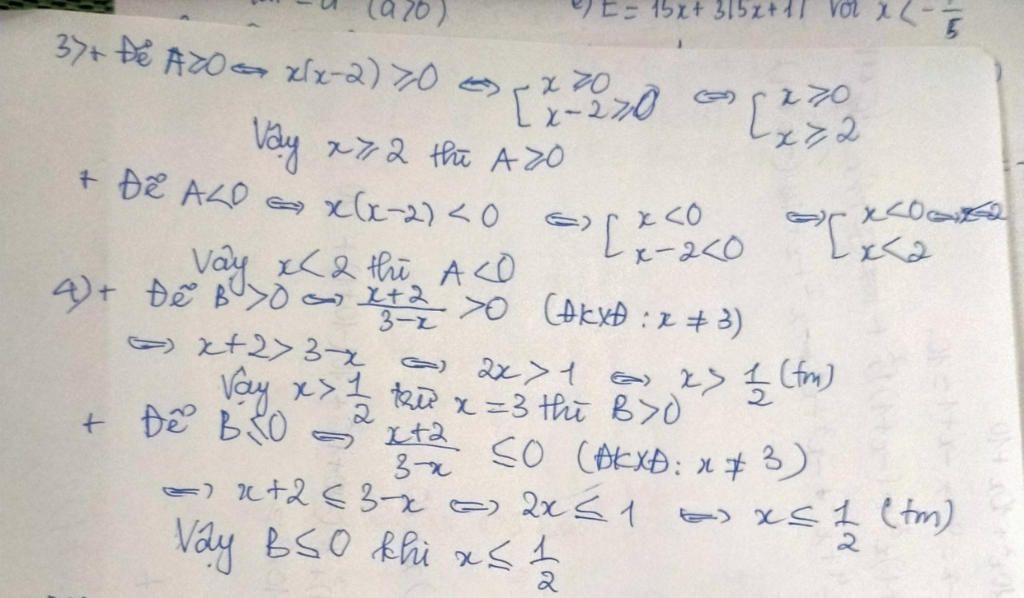 (a>0)
e) E = 15x + 3|5x+1| với x < -1/5
3)+ Để A≥0 ⇔ x(x-2) ≥0 ⇔ [x ≥0 ⇔ [x ≥0
x-2≥0 x≥2
Vậy x≥2 thì A≥0
+ Để A<0 ⇔ x(x-2) <0 ⇔ [x<0 ⇔ [x<0
x-2<0 x<2
Vậy x<2 thì A<0
4)+ Để B>0 ⇔ x+2/3-x >0 (ĐKXĐ: x ≠ 3)
⇔ x+2>3-x ⇔ 2x>1 ⇔ x> 1/2 (tm)
Vậy x>1/2 trừ x=3 thì B>0
+ Để B≤0 ⇔ x+2/3-x ≤0 (ĐKXĐ: x ≠ 3)
⇔ x+2 ≤ 3-x ⇔ 2x ≤ 1 ⇔ x ≤ 1/2 (tm)
Vậy B≤0 khi x ≤ 1/2